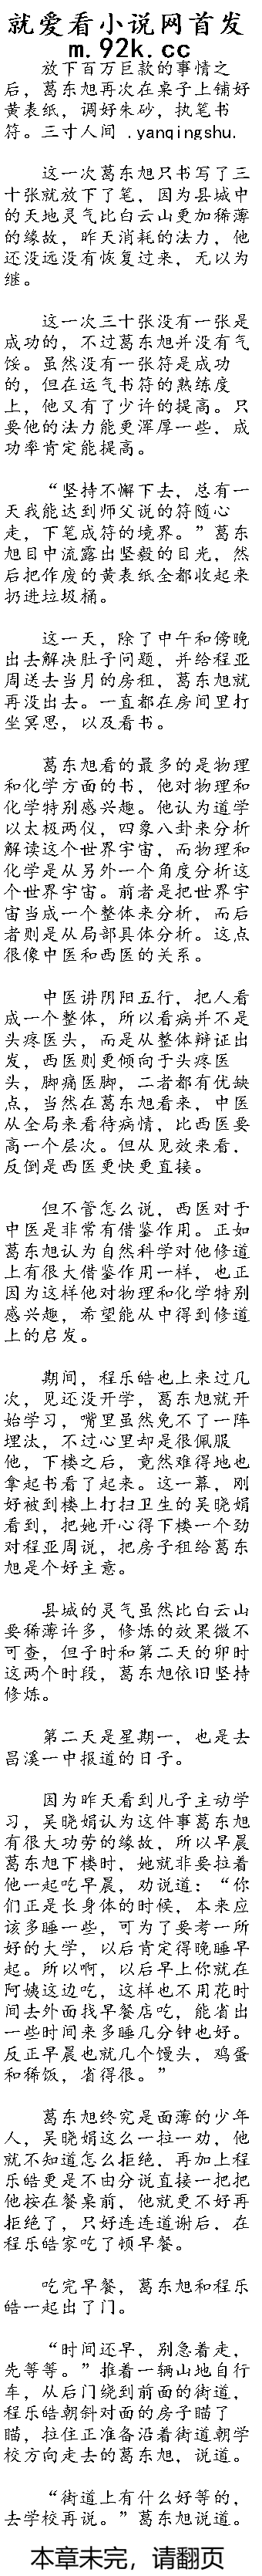 就爱看小说网首发
m.92k.cc
放下百万巨款的事情之
后，葛东旭再次在桌子上铺好
黄表纸，调好朱砂，执笔书
符。三寸人间 .yanqingshu.
这一次葛东旭只书写了三
十张就放下了笔，因为县城中
的天地灵气比白云山更加稀薄
的缘故，昨天消耗的法力，他
还没远没有恢复过来，无以为
继。
这一次三十张没有一张是
成功的，不过葛东旭并没有气
馁。虽然没有一张符是成功
的，但在运气书符的熟练度
上，他又有了少许的提高。只
要他的法力能更浑厚一些，成
功率肯定能提高。
“坚持不懈下去，总有一
天我能达到师父说的符随心
走，下笔成符的境界。”葛东
旭目中流露出坚毅的目光，然
后把作废的黄表纸全都收起来
扔进垃圾桶。
这一天，除了中午和傍晚
出去解决肚子问题，并给程亚
周送去当月的房租，葛东旭就
再没出去。一直都在房间里打
坐冥思，以及看书。
葛东旭看的最多的是物理
和化学方面的书，他对物理和
化学特别感兴趣。他认为道学
以太极两仪，四象八卦来分析
解读这个世界宇宙，而物理和
化学是从另外一个角度分析这
个世界宇宙。前者是把世界宇
宙当成一个整体来分析，而后
者则是从局部具体分析。这点
很像中医和西医的关系。
中医讲阴阳五行，把人看
成一个整体，所以看病并不是
头疼医头，而是从整体辩证出
发，西医则更倾向于头疼医
头，脚痛医脚，二者都有优缺
点，当然在葛东旭看来，中医
从全局来看待病情，比西医要
高一个层次。但从见效来看，
反倒是西医更快更直接。
但不管怎么说，西医对于
中医是非常有借鉴作用。正如
葛东旭认为自然科学对他修道
上有很大借鉴作用一样，也正
因为这样他对物理和化学特别
感兴趣，希望能从中得到修道
上的启发。
期间，程乐皓也上来过几
次，见还没开学，葛东旭就开
始学习，嘴里虽然免不了一阵
埋汰，不过心里却是很佩服
他，下楼之后，竟然难得地也
拿起书看了起来。这一幕，刚
好被到楼上打扫卫生的吴晓娟
看到，把她开心得下楼一个劲
对程亚周说，把房子租给葛东
旭是个好主意。
县城的灵气虽然比白云山
要稀薄许多，修炼的效果微不
可查，但子时和第二天的卯时
这两个时段，葛东旭依旧坚持
修炼。
第二天是星期一，也是去
昌溪一中报道的日子。
因为昨天看到儿子主动学
习，吴晓娟认为这件事葛东旭
有很大功劳的缘故，所以早晨
葛东旭下楼时，她就非要拉着
他一起吃早晨，劝说道：“你
们正是长身体的时候，本来应
该多睡一些，可为了要考一所
好的大学，以后肯定得晚睡早
起。所以啊，以后早上你就在
阿姨这边吃，这样也不用花时
间去外面找早餐店吃，能省出
一些时间来多睡几分钟也好。
反正早晨也就几个馒头，鸡蛋
和稀饭，省得很。”
葛东旭终究是面薄的少年
人，吴晓娟这么一拉一劝，他
就不知道怎么拒绝，再加上程
乐皓更是不由分说直接一把把
他按在餐桌前，他就更不好再
拒绝了，只好连连道谢后，在
程乐皓家吃了顿早餐。
吃完早餐，葛东旭和程乐
皓一起出了门。
“时间还早，别急着走，
先等等。”推着一辆山地自行
车，从后门绕到前面的街道，
程乐皓朝斜对面的房子瞄了
瞄，拉住正准备沿着街道朝学
校方向走去的葛东旭，说道。
“街道上有什么好等的，
去学校再说。”葛东旭说道。
本章未完，请翻页